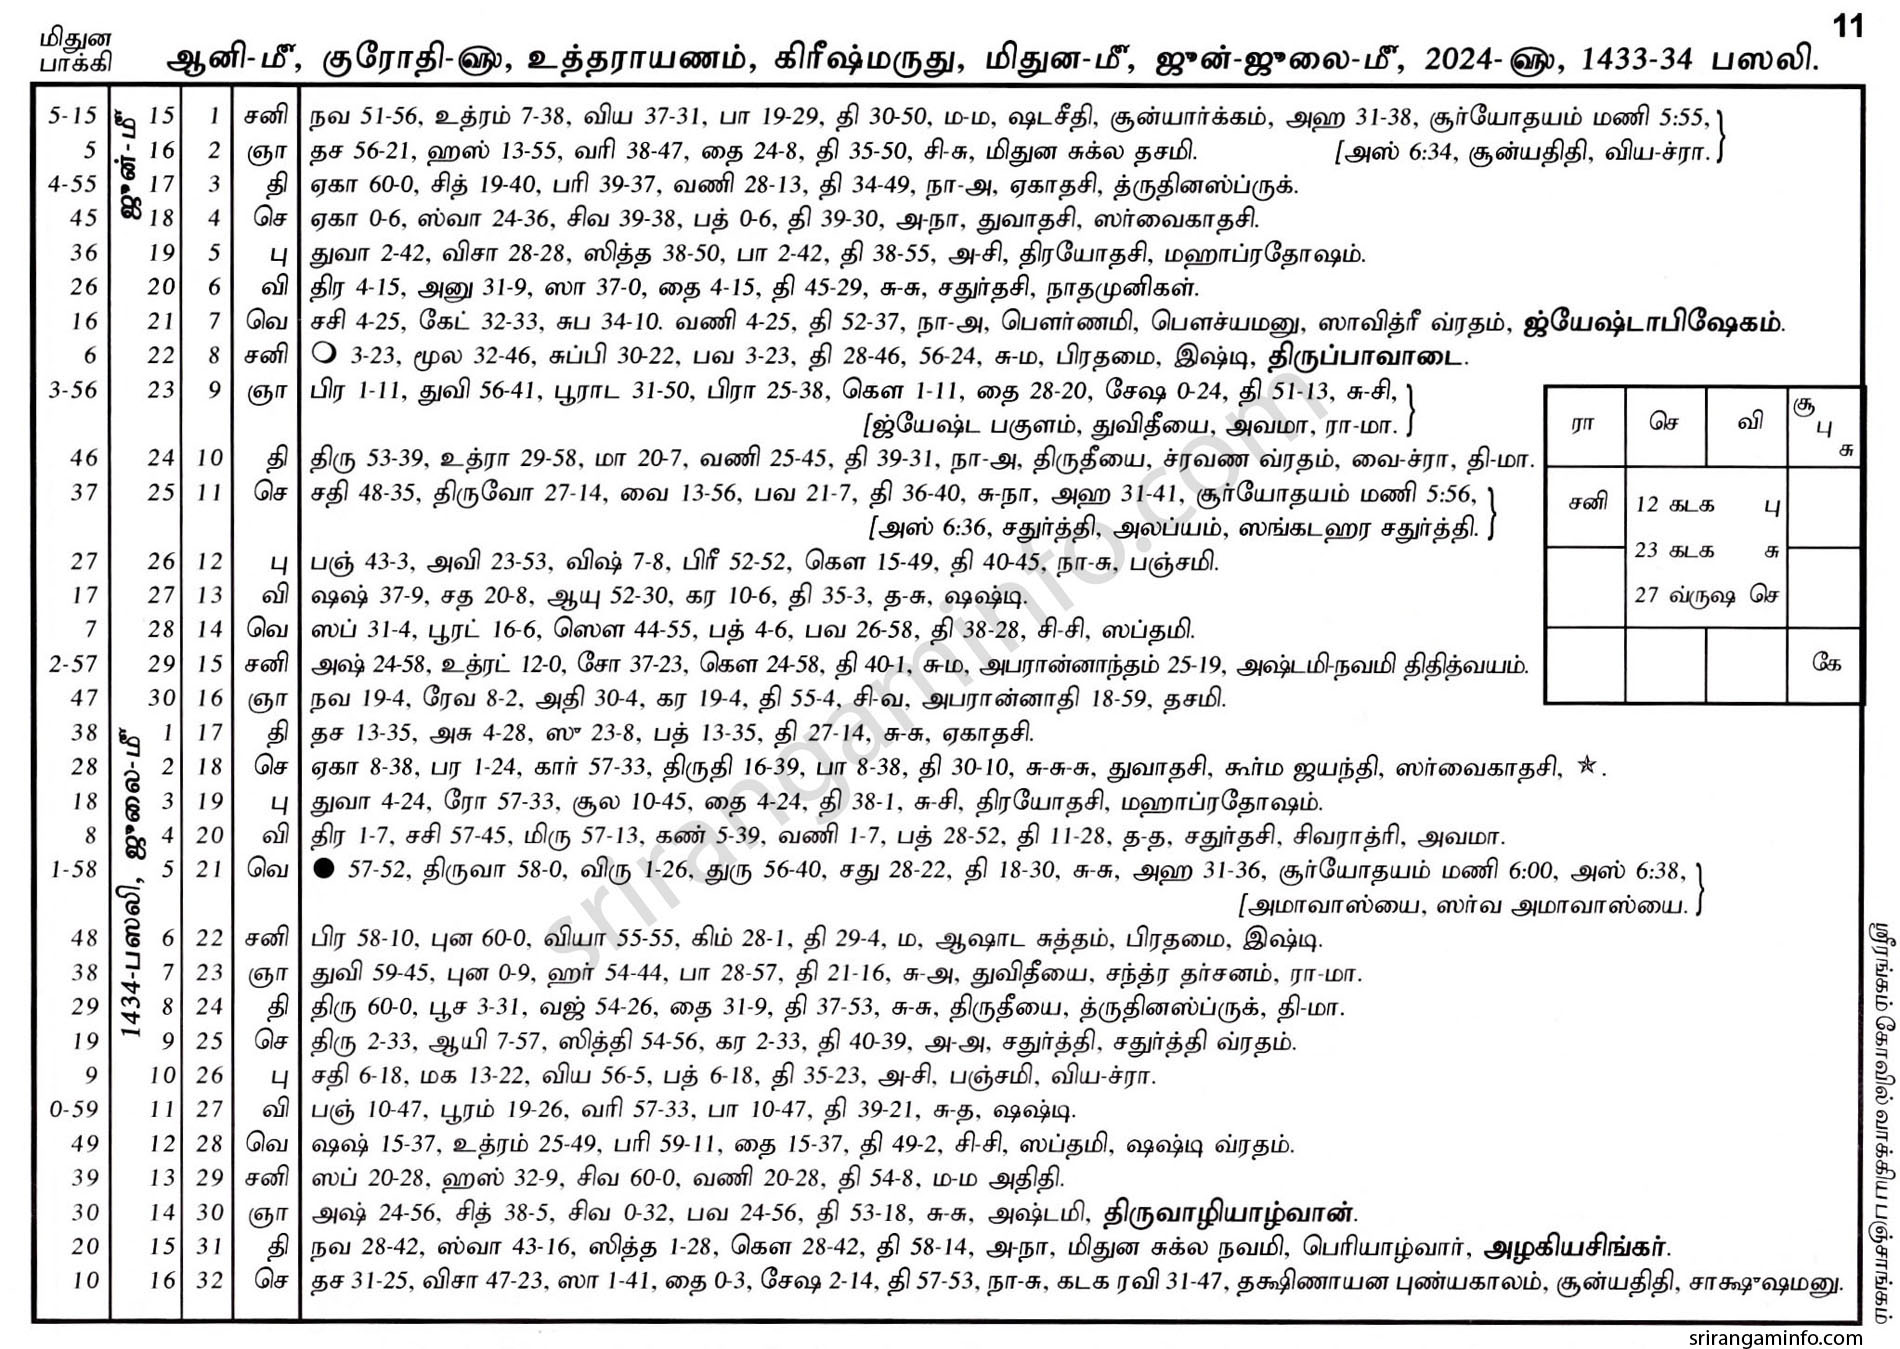 11
மிதுன
பாக்கி
ஆனி-மீ, குரோதி-௵, உத்தராயணம், கிரீஷ்மருது, மிதுன-மீ, ஜுன்-ஜுலை-மீ, 2024-௵, 1433-34 பஸலி.
ஜுன்-மீ
5-15 15 1 சனி நவ 51-56, உத்ரம் 7-38, விய 37-31, பா 19-29, தி 30-50, ம-ம, ஷடசீதி, சூன்யார்க்கம், அஹ 31-38, சூர்யோதயம் மணி 5:55,
5 16 2 ஞா தச 56-21, ஹஸ் 13-55, வரி 38-47, தை 24-8, தி 35-50, சி-சு, மிதுன சுக்ல தசமி. [அஸ் 6:34, சூன்யதிதி, விய-ச்ரா.
4-55 17 3 தி ஏகா 60-0, சித் 19-40, பரி 39-37, வணி 28-13, தி 34-49, நா-அ, ஏகாதசி, த்ருதினஸ்ப்ருக்.
45 18 4 செ ஏகா 0-6, ஸ்வா 24-36, சிவ 39-38, பத் 0-6, தி 39-30, அ-நா, துவாதசி, ஸர்வைகாதசி.
36 19 5 பு துவா 2-42, விசா 28-28, ஸித்த 38-50, பா 2-42, தி 38-55, அ-சி, திரயோதசி, மஹாப்ரதோஷம்.
26 20 6 வி திர 4-15, அனு 31-9, ஸா 37-0, தை 4-15, தி 45-29, சு-சு, சதுர்தசி, நாதமுனிகள்.
16 21 7 வெ சசி 4-25, கேட் 32-33, சுப 34-10. வணி 4-25, தி 52-37, நா-அ, பௌர்ணமி, பௌச்யமனு, ஸாவித்ரீ வ்ரதம், ஜ்யேஷ்டாபிஷேகம்.
6 22 8 சனி ○ 3-23, மூல 32-46, சுப்பி 30-22, பவ 3-23, தி 28-46, 56-24, சு-ம, பிரதமை, இஷ்டி, திருப்பாவாடை.
3-56 23 9 ஞா பிர 1-11, துவி 56-41, பூராட 31-50, பிரா 25-38, கௌ 1-11, தை 28-20, சேஷ 0-24, தி 51-13, சு-சி,
[ஜ்யேஷ்ட பகுளம், துவிதீயை, அவமா, ரா-மா.
46 24 10 தி திரு 53-39, உத்ரா 29-58, மா 20-7, வணி 25-45, தி 39-31, நா-அ, திருதீயை, ச்ரவண வ்ரதம், வை-ச்ரா, தி-மா.
37 25 11 செ சதி 48-35, திருவோ 27-14, வை 13-56, பவ 21-7, தி 36-40, சு-நா, அஹ 31-41, சூர்யோதயம் மணி 5:56,
[அஸ் 6:36, சதுர்த்தி, அலப்யம், ஸங்கடஹர சதுர்த்தி.
27 26 12 பு பஞ் 43-3, அவி 23-53, விஷ் 7-8, பிரீ 52-52, கௌ 15-49, தி 40-45, நா-சு, பஞ்சமி.
17 27 13 வி ஷஷ் 37-9, சத 20-8, ஆயு 52-30, கர 10-6, தி 35-3, த-சு, ஷஷ்டி.
7 28 14 வெ ஸப் 31-4, பூரட் 16-6, ஸௌ 44-55, பத் 4-6, பவ 26-58, தி 38-28, சி-சி, ஸப்தமி.
2-57 29 15 சனி அஷ் 24-58, உத்ரட் 12-0, சோ 37-23, கௌ 24-58, தி 40-1, சு-ம, அபரான்னாந்தம் 25-19, அஷ்டமி-நவமி திதித்வயம்.
47 30 16 ஞா நவ 19-4, ரேவ 8-2, அதி 30-4, கர 19-4, தி 55-4, சி-வ, அபரான்னாதி 18-59, தசமி.
ரா செ வி சூ பு சு
சனி 12 கடக பு
23 கடக சு
27 வ்ருஷ செ
கே
1434-பஸலி, ஜுலை-மீ
38 1 17 தி தச 13-35, அசு 4-28, ஸு 23-8, பத் 13-35, தி 27-14, சு-சு, ஏகாதசி.
28 2 18 செ ஏகா 8-38, பர 1-24, கார் 57-33, திருதி 16-39, பா 8-38, தி 30-10, சு-சு-சு, துவாதசி, கூர்ம ஜயந்தி, ஸர்வைகாதசி, ☆.
18 3 19 பு துவா 4-24, ரோ 57-33, சூல 10-45, தை 4-24, தி 38-1, சு-சி, திரயோதசி, மஹாப்ரதோஷம்.
8 4 20 வி திர 1-7, சசி 57-45, மிரு 57-13, கண் 5-39, வணி 1-7, பத் 28-52, தி 11-28, த-த, சதுர்தசி, சிவராத்ரி, அவமா.
1-58 5 21 வெ ● 57-52, திருவா 58-0, விரு 1-26, துரு 56-40, சது 28-22, தி 18-30, சு-சு, அஹ 31-36, சூர்யோதயம் மணி 6:00, அஸ் 6:38,
[அமாவாஸ்யை, ஸர்வ அமாவாஸ்யை.
48 6 22 சனி பிர 58-10, புன 60-0, வியா 55-55, கிம் 28-1, தி 29-4, ம, ஆஷாட சுத்தம், பிரதமை, இஷ்டி.
38 7 23 ஞா துவி 59-45, புன 0-9, ஹர் 54-44, பா 28-57, தி 21-16, சு-அ, துவிதீயை, சந்த்ர தர்சனம், ரா-மா.
29 8 24 தி திரு 60-0, பூச 3-31, வஜ் 54-26, தை 31-9, தி 37-53, சு-சு, திருதீயை, த்ருதினஸ்ப்ருக், தி-மா.
19 9 25 செ திரு 2-33, ஆயி 7-57, ஸித்தி 54-56, கர 2-33, தி 40-39, அ-அ, சதுர்த்தி, சதுர்த்தி வ்ரதம்.
9 10 26 பு சதி 6-18, மக 13-22, விய 56-5, பத் 6-18, தி 35-23, அ-சி, பஞ்சமி, விய-ச்ரா.
0-59 11 27 வி பஞ் 10-47, பூரம் 19-26, வரி 57-33, பா 10-47, தி 39-21, சு-த, ஷஷ்டி.
49 12 28 வெ ஷஷ் 15-37, உத்ரம் 25-49, பரி 59-11, தை 15-37, தி 49-2, சி-சி, ஸப்தமி, ஷஷ்டி வ்ரதம்.
39 13 29 சனி ஸப் 20-28, ஹஸ் 32-9, சிவ 60-0, வணி 20-28, தி 54-8, ம-ம அதிதி.
30 14 30 ஞா அஷ் 24-56, சித் 38-5, சிவ 0-32, பவ 24-56, தி 53-18, சு-சு, அஷ்டமி, திருவாழியாழ்வான்.
20 15 31 தி நவ 28-42, ஸ்வா 43-16, ஸித்த 1-28, கௌ 28-42, தி 58-14, அ-நா, மிதுன சுக்ல நவமி, பெரியாழ்வார், அழகியசிங்கர்.
10 16 32 செ தச 31-25, விசா 47-23, ஸா 1-41, தை 0-3, சேஷ 2-14, தி 57-53, நா-சு, கடக ரவி 31-47, தக்ஷிணாயன புண்யகாலம், சூன்யதிதி, சாக்ஷுஷமனு.
ஸ்ரீரங்கம் கோவில் வாக்கிய பஞ்சாங்கம்
srirangaminfo.com
srirangaminfo.com